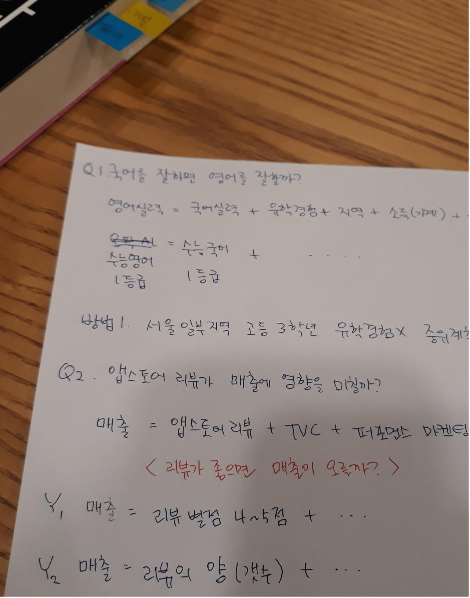 Q1. 국어를 잘하면 영어를 잘할까?
영어실력 = 국어실력 + 유학경험 + 지역 + 소득(가계) +
= 수능국어 + ....
수능영어
1등급 1등급
방법1. 서울 일부지역 고등 3학년 유학경험X
Q2. 앱스토어 리뷰가 매출에 영향을 미칠까?
매출 = 앱스토어 리뷰 + TVC + 퍼포먼스 마케팅
<리뷰가 좋으면 매출이 오를까?>
Y₁ 매출 = 리뷰 별점 4~5점 + ...
Y₂ 매출 = 리뷰의 양(갯수) + ...